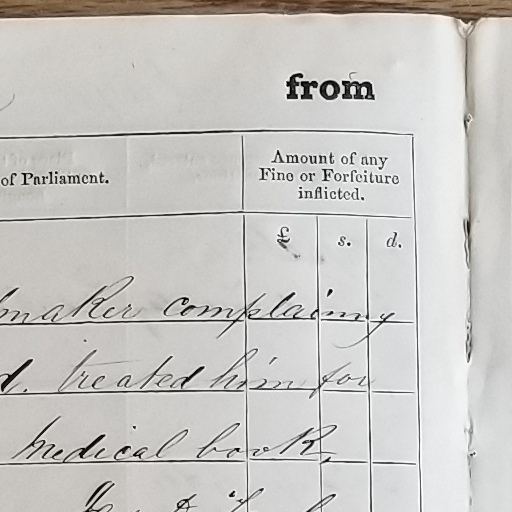 from
of Parliament.
Amount of any
Fine or Forfeiture
inflicted.
£ s. d.
maker complainy
d. treated him for
medical book,